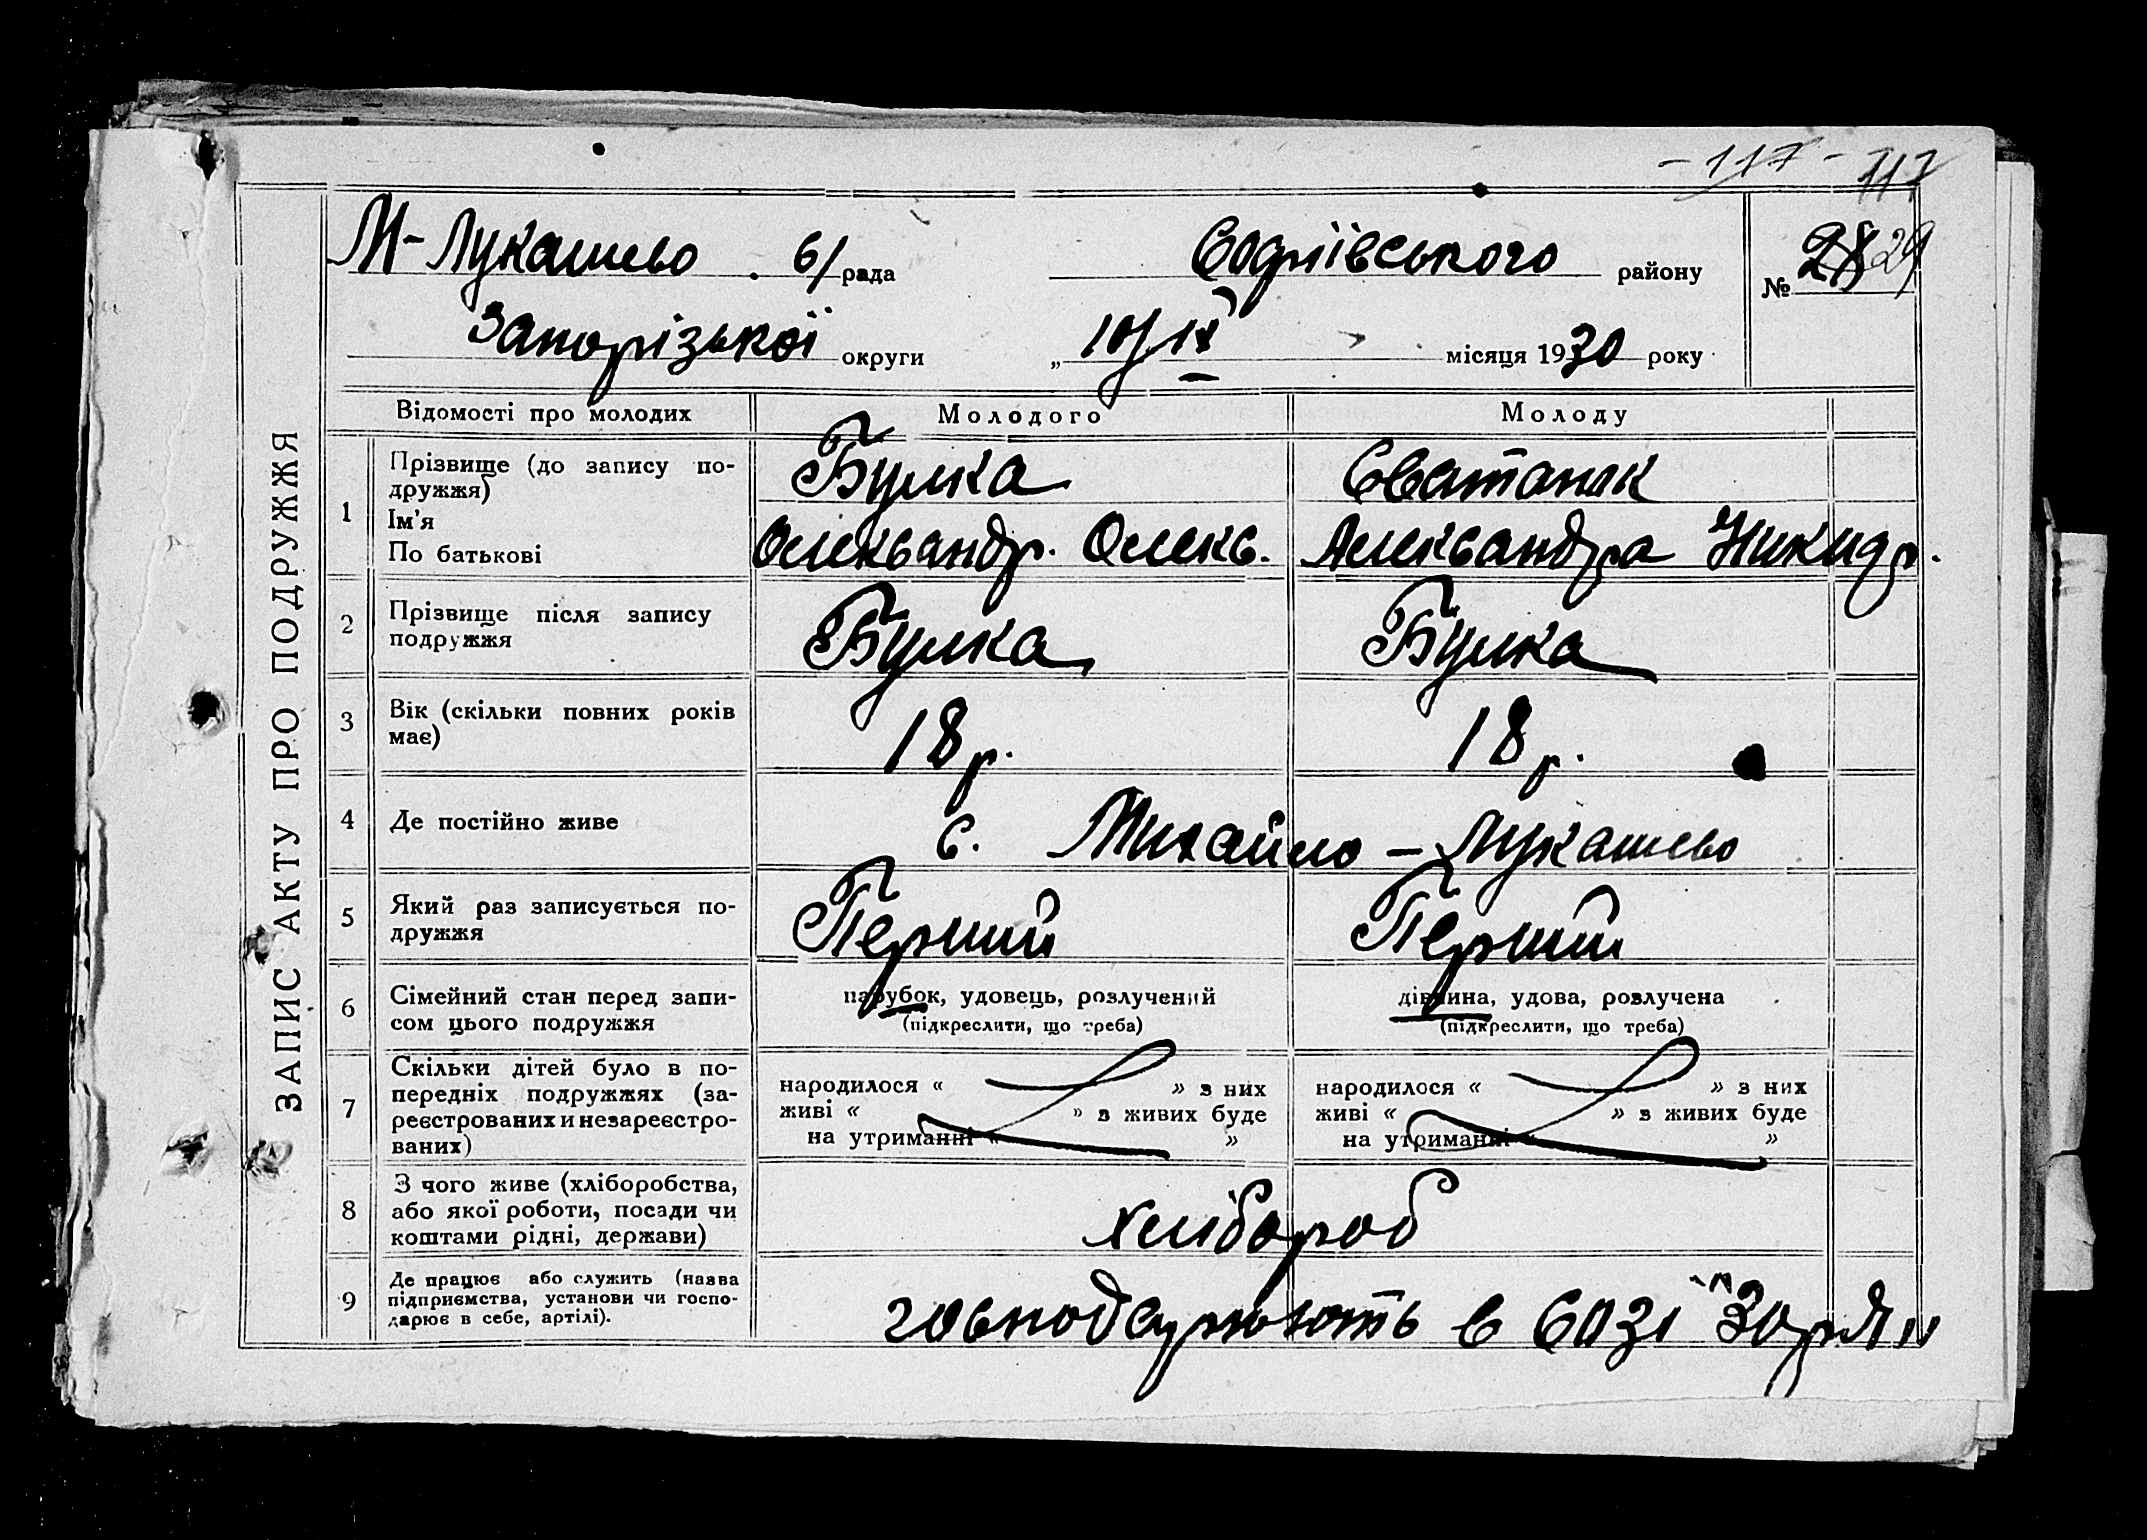 - 117 - 117
М-Лукашево с/ рада Софіївського району № 28 29
Запорізької округи „ 10/IX місяця 1930 року
ЗАПИС АКТУ ПРО ПОДРУЖЖЯ
Відомості про молодих Молодого Молоду
1 Прізвище (до запису по-
дружжя)
Булка
Ім'я
По батькові
Олександр. Олекс. Александра Никидр.
2 Прізвище після запису
подружжя
Булка Булка
3 Вік (скільки повних років
має)
18 р. 18 р.
4 Де постійно живе с. Михайло - Лукашево
5 Який раз записується по-
дружжя
Перший Перший
6 Сімейний стан перед запи-
сом цього подружжя
парубок, удовець, розлучений дівчина, удова, розлучена
(підкреслити, що треба) (підкреслити, що треба)
7 Скільки дітей було в по-
передніх подружжях (за-
реєстрованих и незареєстро-
ваних)
народилося « » з них народилося « » з них
живі « » з живих буде живі « » з живих буде
на утриманні « » на утриманні « »
8 З чого живе (хліборобства,
або якої роботи, посади чи
коштами рідні, держави)
хлібороб
9 Де працює або служить (назва
підприємства, установи чи госпо-
дарює в себе, артілі).
господарюють в созі "Зоря"